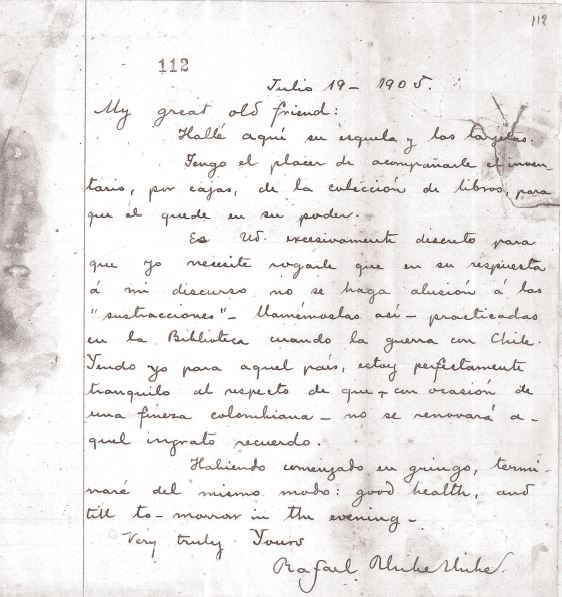 112
112
Julio 19 - 1905.
My great old friend:
Hallé aquí su esquela y las tarjetas.
Tengo el placer de acompañarle el inven-
tario, por cajas, de la colección de libros, para
que él quede en su poder.
Es Ud. excesivamente discreto para
que yo necesite rogarle que en su respuesta
á mi discurso no se haga alusión á las
"sustracciones" - llamémoslas así - practicadas
en la Biblioteca cuando la guerra con Chile.
Yendo yo para aquel país, estoy perfectamente
tranquilo al respecto de que - con ocasión de
una fineza colombiana - no se renovará a-
quel ingrato recuerdo.
Habiendo comenzado en gringo, termi-
naré del mismo modo: good health, and
till to-morrow in the evening -
Very truly Yours
Rafael Uribe Uribe.